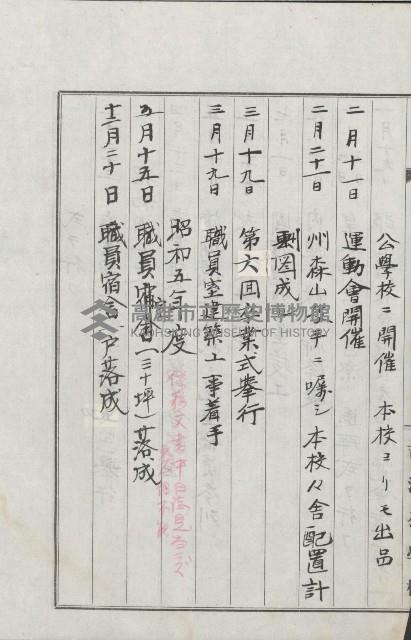 公學校ニ開催 本校ヨリモ出品
二月十一日 運動會開催
二月二十一日 州森山技手ニ囑シ本校々舍配置計
劃図成ル
三月十九日 第六回卒業式挙行
三月十九日 職員室建築工事着手
昭和五年度
五月十五日 職員宿舍(三十坪)落成
十二月二十日 職員宿舍一戸落成
高雄市立歷史博物館
KAOHSIUNG MUSEUM OF HISTORY